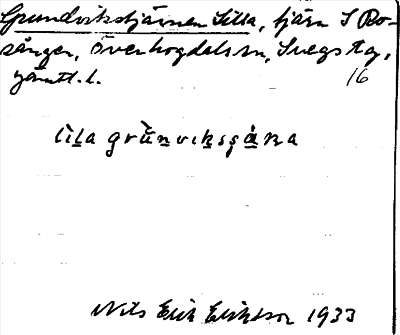 Grundvikstjärnen Lilla, tjärn S Ro-
sången, Överhogdals sn, Svegs tg,
Jämtl. l. 16
lìla grùnviksgáṇa
Nils Erik Eriksson 1933